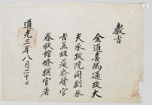 敎旨
金道喜爲通政大
夫承政院同副承
旨兼經筵參贊官
春秋館修撰官者
道光三年八月二十日